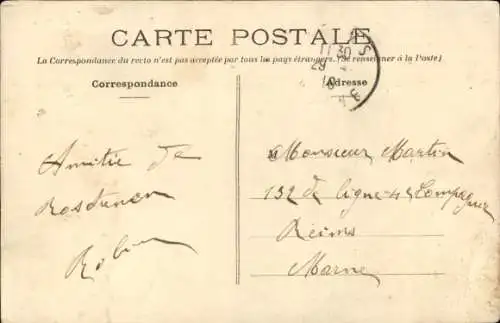 CARTE POSTALE
La Correspondance du recto n'est pas acceptée par tous les pays étrangers. (Se renseigner à la Poste)
Correspondance
Adresse
Amitié de
Rostrenen
Robin
Monsieur Martin
132 de ligne 4e Compagnie
Reims
Marne